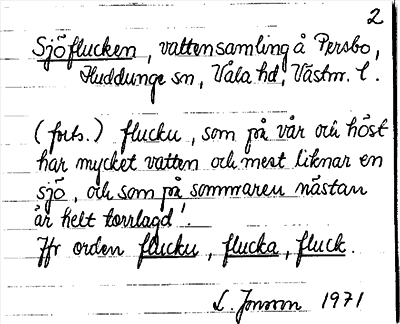 2
Sjöflucken, vattensamling å Persbo,
Huddunge sn, Våla hd, Västm. l.
(forts.) flucku, som på vår och höst
har mycket vatten och mest liknar en
sjö, och som på sommaren nästan
är helt torrlagd'.
Jfr orden flucku, flucka, fluck.
L. Jonson 1971